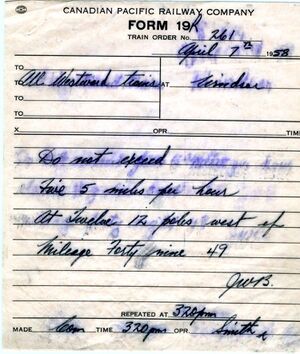 CANADIAN PACIFIC RAILWAY COMPANY
FORM 19R
TRAIN ORDER No. 261
April 7th 1958
TO All Westward trains AT Windsor
TO
TO
X OPR. TIME
Do not exceed
Five 5 miles per hour
At Twelve 12 poles west of
Mileage Forty nine 49
JWB.
REPEATED AT 320pm
MADE Com TIME 320pm OPR. Smith